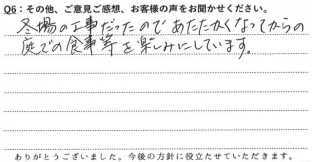 Q6：その他、ご意見ご感想、お客様の声をお聞かせください。
冬場の工事だったので あたたかくなってからの
庭での食事等を楽しみにしています。
ありがとうございました。今後の方針に役立たせていただきます。